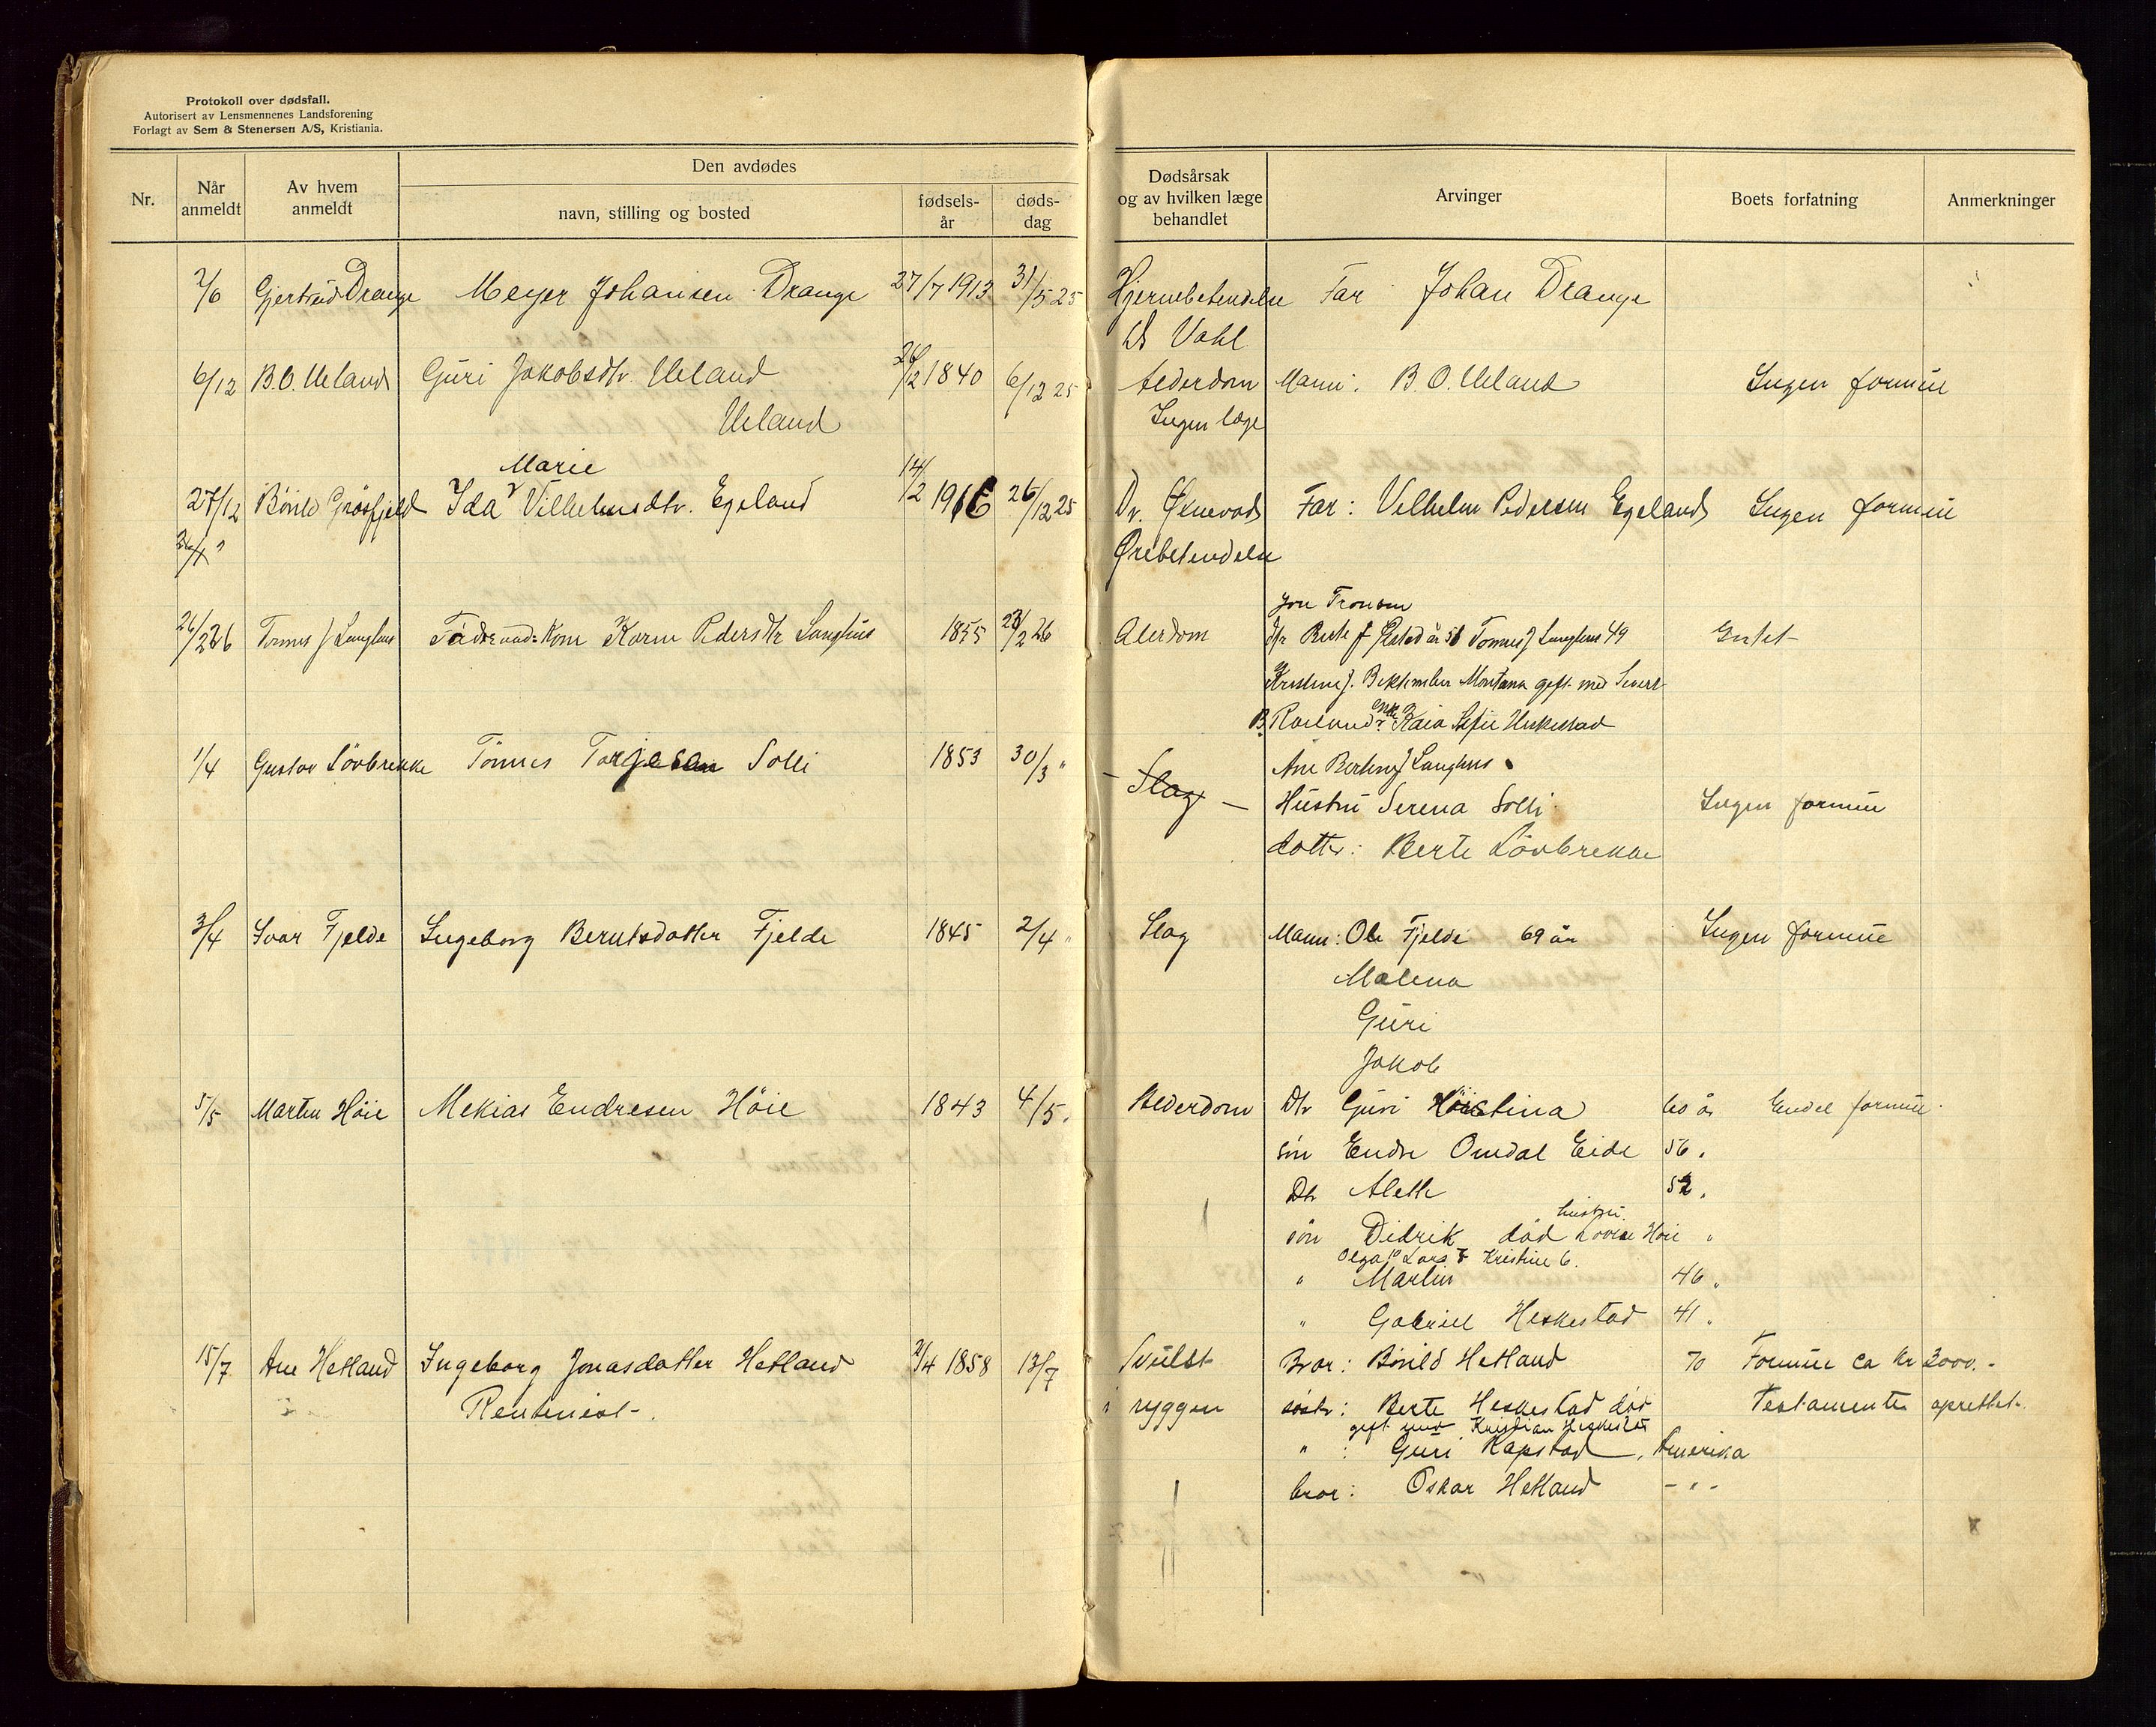 Protokoll over dødsfall.
Autorisert av Lensmennenes Landsforening
Forlagt av Sem & Stenersen A/S, Kristiania.
Nr.
Når anmeldt
Av hvem anmeldt
Den avdødes
navn, stilling og bosted
fødsels-år
døds-dag
Dødsårsak og av hvilken læge behandlet
Arvinger
Boets forfatning
Anmerkninger
2/6 Gjertrud Drange Meyer Johansen Drange 27/7 1913 31/5 25 Hjernebetendelse Far Johan Drange
Dr Vahl
6/12 B.O. Ueland Guri Jakobsdtr. Ueland 26/2 1840 6/12 25 Alderdom Mann: B.O. Ueland Ingen formue
Ueland Ingen læge
Marie
27/12 Börild Grösfjeld Ida Vilhelmsdtr. Egeland 14/2 1916 26/12 25 Dr. Øknevads Far: Vilhelm Pedersen Egeland Ingen formue
Ørebetendelse
Jon Tronsen
26/2 26 Tønnes J Langhus Karen Pedersdtr Langhus 1855 23/2 26 Alerdom dtr Berte J år 51 Tønnes J Langhus 49 Entet
Kristine J. Montana gift med Sivert
B. Rosland enke Kaia Sofie Heskestad
Ane Bertine J Langhus
1/4 Gustav Lövbrekke Tönnes Torgesen Solli 1853 30/3 " - Slag - Hustru Serena Solli Ingen formue
datter: Berte Lövbrekke
3/4 Ivar Fjelde Ingeborg Berntsdatter Fjelde 1845 2/4 " Slag Mann: Ole Fjelde 69 år Ingen formue
Malena
Guri
Jakob
5/5 Martin Höie Mekias Endresen Höie 1843 4/5. Alderdom Dtr Guri 60 år Endel formue.
sön Endre Omdal Eide 56 "
Dtr Alette 52 "
hustru
sön Didrik död Lovise Höie "
Olga 10 Lars 8 Kristine 6.
" Martin 46 "
" Gabriel Heskestad 41 "
15/7 Ane Hetland Ingeborg Jonasdatter Hetland 2/4 1858 13/7 Svulst Bror: Börild Hetland 70 Formue ca kr 3000.-
Rentenist. i ryggen söster: Berte Heskestad död Testamente oprettet.
gift med Kristian Heskestad
" : Guri Rapstad, Amerika
bror: Oskar Hetland - " -